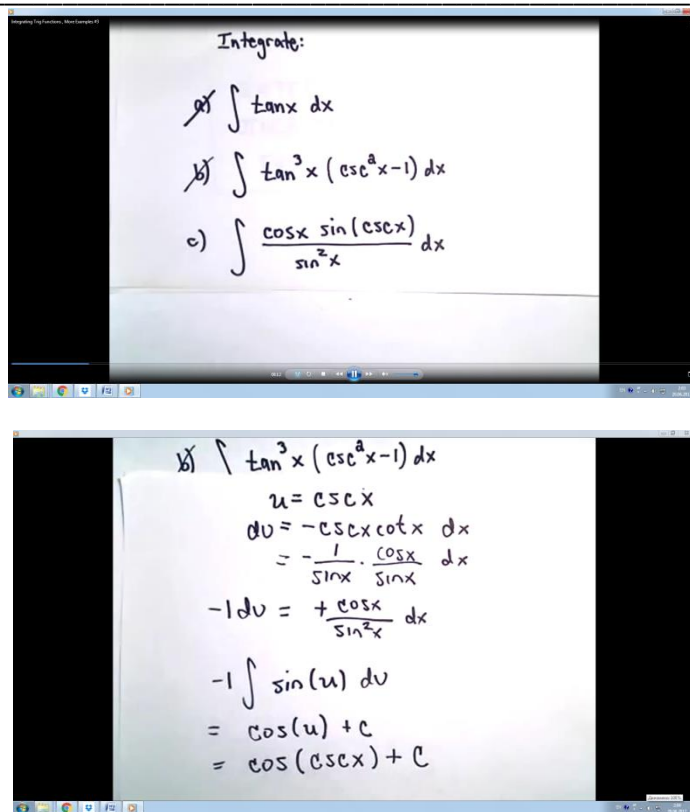 Integrating Trig Functions , More Examples #3
Integrate:
a) ∫ tanx dx
b) ∫ tan³x (csc²x-1) dx
c) ∫ cosx sin(cscx) / sin²x dx
b) ∫ tan³x (csc²x-1) dx
u = cscx
du = -cscxcotx dx
= - 1/sinx · cosx/sinx dx
-1du = + cosx/sin²x dx
-1 ∫ sin(u) du
= cos(u) + C
= cos(cscx) + C